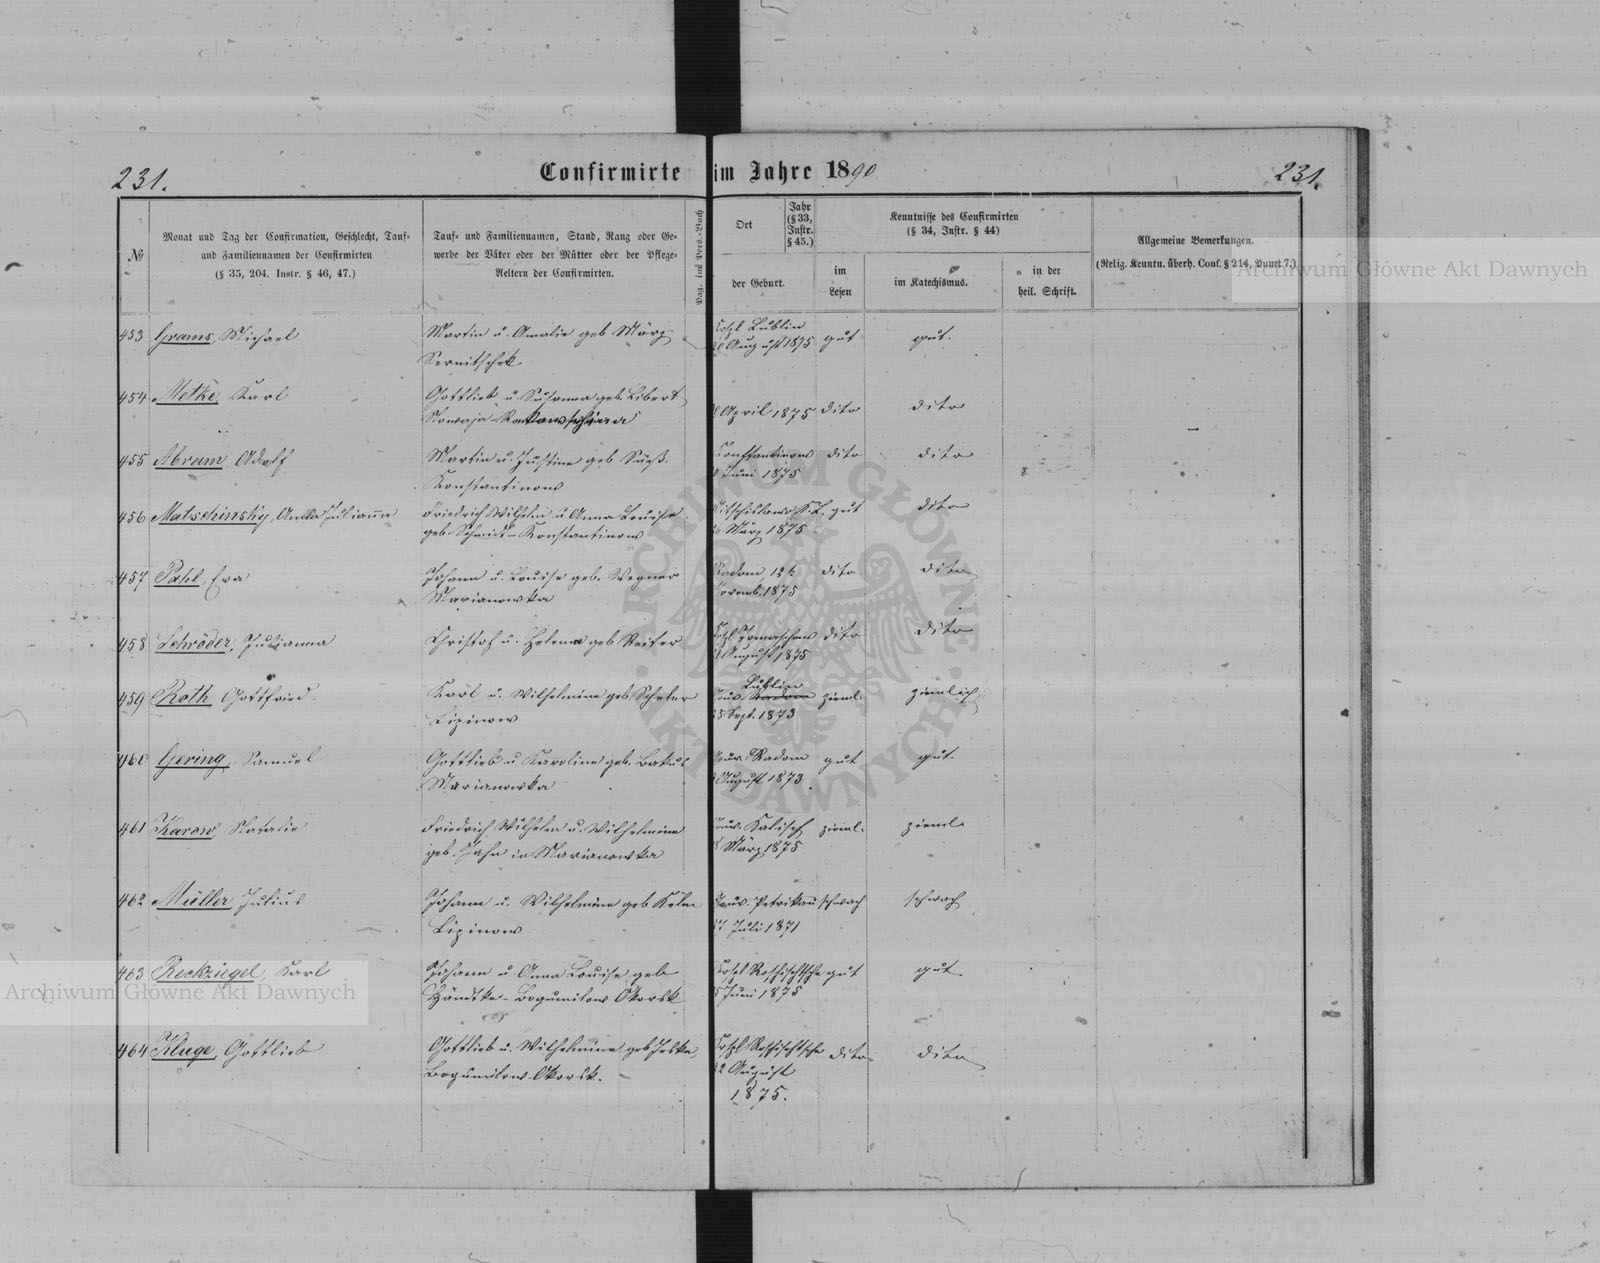 231.
Confirmirte im Jahre 1890
231.
№
Monat und Tag der Confirmation, Geschlecht, Tauf-
und Familiennamen der Confirmirten
(§ 35, 204. Instr. § 46, 47.)
Tauf- und Familiennamen, Stand, Rang oder Ge-
werbe der Väter oder der Mütter oder der Pflege-
Aeltern der Confirmirten.
Pag. im Pers.-Buch
Ort
Jahr
(§ 33,
Instr.
§ 45.)
der Geburt.
Kenntnisse des Confirmirten
(§ 34, Instr. § 44)
im
Lesen
im Katechismus.
in der
heil. Schrift.
Allgemeine Bemerkungen.
(Relig. Kenntn. überh. Conf. § 214, Punct 7.)
453 Grams, Michael
Martin u. Amalie geb. März
Sernitschek
Lublin
August 1875 gut gut.
454 Metke, Karl
Gottlieb u. Susanna geb. Libert
Nowaja
April 1875 dito dito
455 Abram Adolf
Martin u. Justine geb. Süß.
Konstantinow
Constantinow dito dito
Juni 1875
456 Matschinsky, Anna Julianna
Friedrich Wilhelm u. Anna Louise
geb. Schmidt - Konstantinow
gut dito
März 1875
457 Pahl, Eva
Johann u. Louise geb. Wegner
Marianowka
Radom dito dito
Novemb. 1875
458 Schröder, Julianna
Christof u. Helena geb. Reiter
Tomaschow dito dito
August 1875
459 Roth, Gottfried
Karl u. Wilhelmine geb. Scheler
Lipinow
Lublin
Gouv. Radom zieml. ziemlich
25 Sept. 1873
460 Gering, Samuel
Gottlieb u. Karoline geb. Bakus
Marianowka
Gouv. Radom gut gut.
August 1873.
461 Karow, Natalie
Friedrich Wilhelm u. Wilhelmine
geb. Jahn in Marianowka
Gouv. Kalisch zieml. zieml.
März 1875
462 Müller, Julius
Johann u. Wilhelmine geb. Kelm
Lipinow
Gouv. Petrikau schwach schwach
27 Juli 1871
463 Reckziegel, Karl
Johann u. Anna Louise geb.
Häniske - Bogumilow Okorsk
Roschischtsche gut gut
Juni 1875
464 Kluge, Gottlieb
Gottlieb u. Wilhelmine geb. Jeske,
Bogumilow Okorsk.
Roschischtsche dito dito
22 August
1875.
Archiwum Główne Akt Dawnych
Archiwum Główne Akt Dawnych
ARCHIWUM GŁÓWNE AKT DAWNYCH